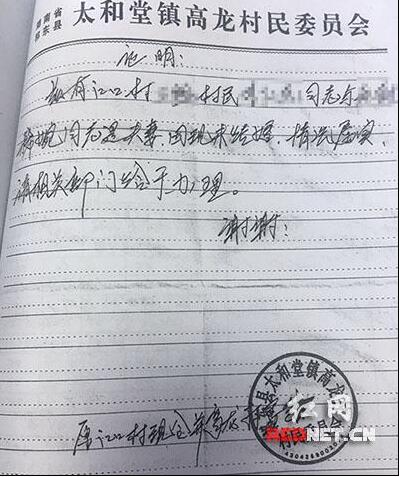 湖南省
邵东县 太和堂镇高龙村民委员会
证明:
兹有江口村 村民 同志与
同志是夫妻,因现未结婚,情况属实,
请相关部门给于力理。
谢谢!
原江口村现合并高龙村
县太和堂镇高龙
村民委员会
红网
REDNET.CN